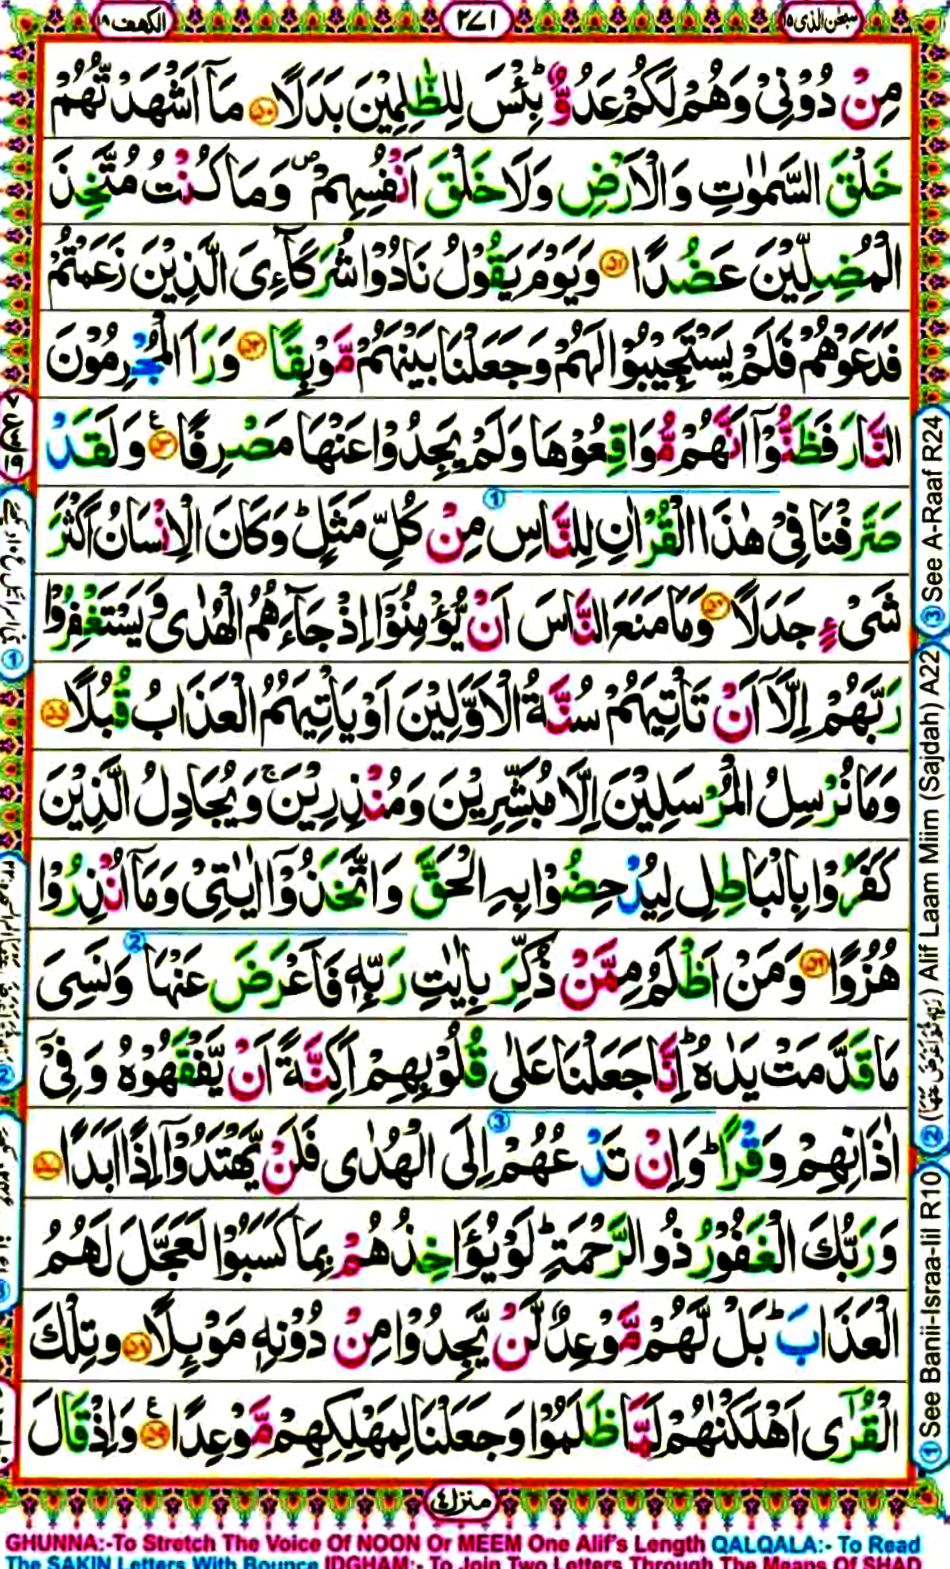 سبحٰن الذی ۱۵
٢٧١
الكهف ۱۸
مِنْ دُوْنِیْ وَهُمْ لَكُمْ عَدُوٌّ ؕ بِئْسَ لِلظّٰلِمِیْنَ بَدَلًا ۵۰ مَاۤ اَشْهَدْتُّهُمْ
خَلْقَ السَّمٰوٰتِ وَالْاَرْضِ وَلَا خَلْقَ اَنْفُسِهِمْ ۪ وَمَا كُنْتُ مُتَّخِذَ
الْمُضِلِّیْنَ عَضُدًا ۵۱ وَیَوْمَ یَقُوْلُ نَادُوْا شُرَكَآءِیَ الَّذِیْنَ زَعَمْتُمْ
فَدَعَوْهُمْ فَلَمْ یَسْتَجِیْبُوْا لَهُمْ وَجَعَلْنَا بَیْنَهُمْ مَّوْبِقًا ۵۲ وَرَاَ الْمُجْرِمُوْنَ
النَّارَ فَظَنُّوْۤا اَنَّهُمْ مُّوَاقِعُوْهَا وَلَمْ یَجِدُوْا عَنْهَا مَصْرِفًا ۵۳ وَلَقَدْ
صَرَّفْنَا فِیْ هٰذَا الْقُرْاٰنِ لِلنَّاسِ مِنْ كُلِّ مَثَلٍ ؕ وَكَانَ الْاِنْسَانُ اَكْثَرَ
شَیْءٍ جَدَلًا ۵۴ وَمَا مَنَعَ النَّاسَ اَنْ یُّؤْمِنُوْۤا اِذْ جَآءَهُمُ الْهُدٰی وَیَسْتَغْفِرُوْا
رَبَّهُمْ اِلَّاۤ اَنْ تَاْتِیَهُمْ سُنَّةُ الْاَوَّلِیْنَ اَوْ یَاْتِیَهُمُ الْعَذَابُ قُبُلًا ۵۵
وَمَا نُرْسِلُ الْمُرْسَلِیْنَ اِلَّا مُبَشِّرِیْنَ وَمُنْذِرِیْنَ ۚ وَیُجَادِلُ الَّذِیْنَ
كَفَرُوْا بِالْبَاطِلِ لِیُدْحِضُوْا بِهِ الْحَقَّ وَاتَّخَذُوْۤا اٰیٰتِیْ وَمَاۤ اُنْذِرُوْا
هُزُوًا ۵۶ وَمَنْ اَظْلَمُ مِمَّنْ ذُكِّرَ بِاٰیٰتِ رَبِّهٖ فَاَعْرَضَ عَنْهَا وَنَسِیَ
مَا قَدَّمَتْ یَدٰهُ ؕ اِنَّا جَعَلْنَا عَلٰی قُلُوْبِهِمْ اَكِنَّةً اَنْ یَّفْقَهُوْهُ وَفِیْۤ
اٰذَانِهِمْ وَقْرًا ؕ وَاِنْ تَدْعُهُمْ اِلَی الْهُدٰی فَلَنْ یَّهْتَدُوْۤا اِذًا اَبَدًا ۵۷
وَرَبُّكَ الْغَفُوْرُ ذُو الرَّحْمَةِ ؕ لَوْ یُؤَاخِذُهُمْ بِمَا كَسَبُوْا لَعَجَّلَ لَهُمُ
الْعَذَابَ ؕ بَلْ لَّهُمْ مَّوْعِدٌ لَّنْ یَّجِدُوْا مِنْ دُوْنِهٖ مَوْىِٕلًا ۵۸ وَتِلْكَ
الْقُرٰۤی اَهْلَكْنٰهُمْ لَمَّا ظَلَمُوْا وَجَعَلْنَا لِمَهْلِكِهِمْ مَّوْعِدًا ۵۹ وَاِذْ قَالَ
منزل ٤
① See Banii-Israa-iil R10 ② Alif Laam Miim (Sajdah) A22 ③ See A-Raaf R24
GHUNNA:-To Stretch The Voice Of NOON Or MEEM One Alif's Length QALQALA:- To Read
The SAKIN Letters With Bounce IDGHAM:- To Join Two Letters Through The Means Of SHAD